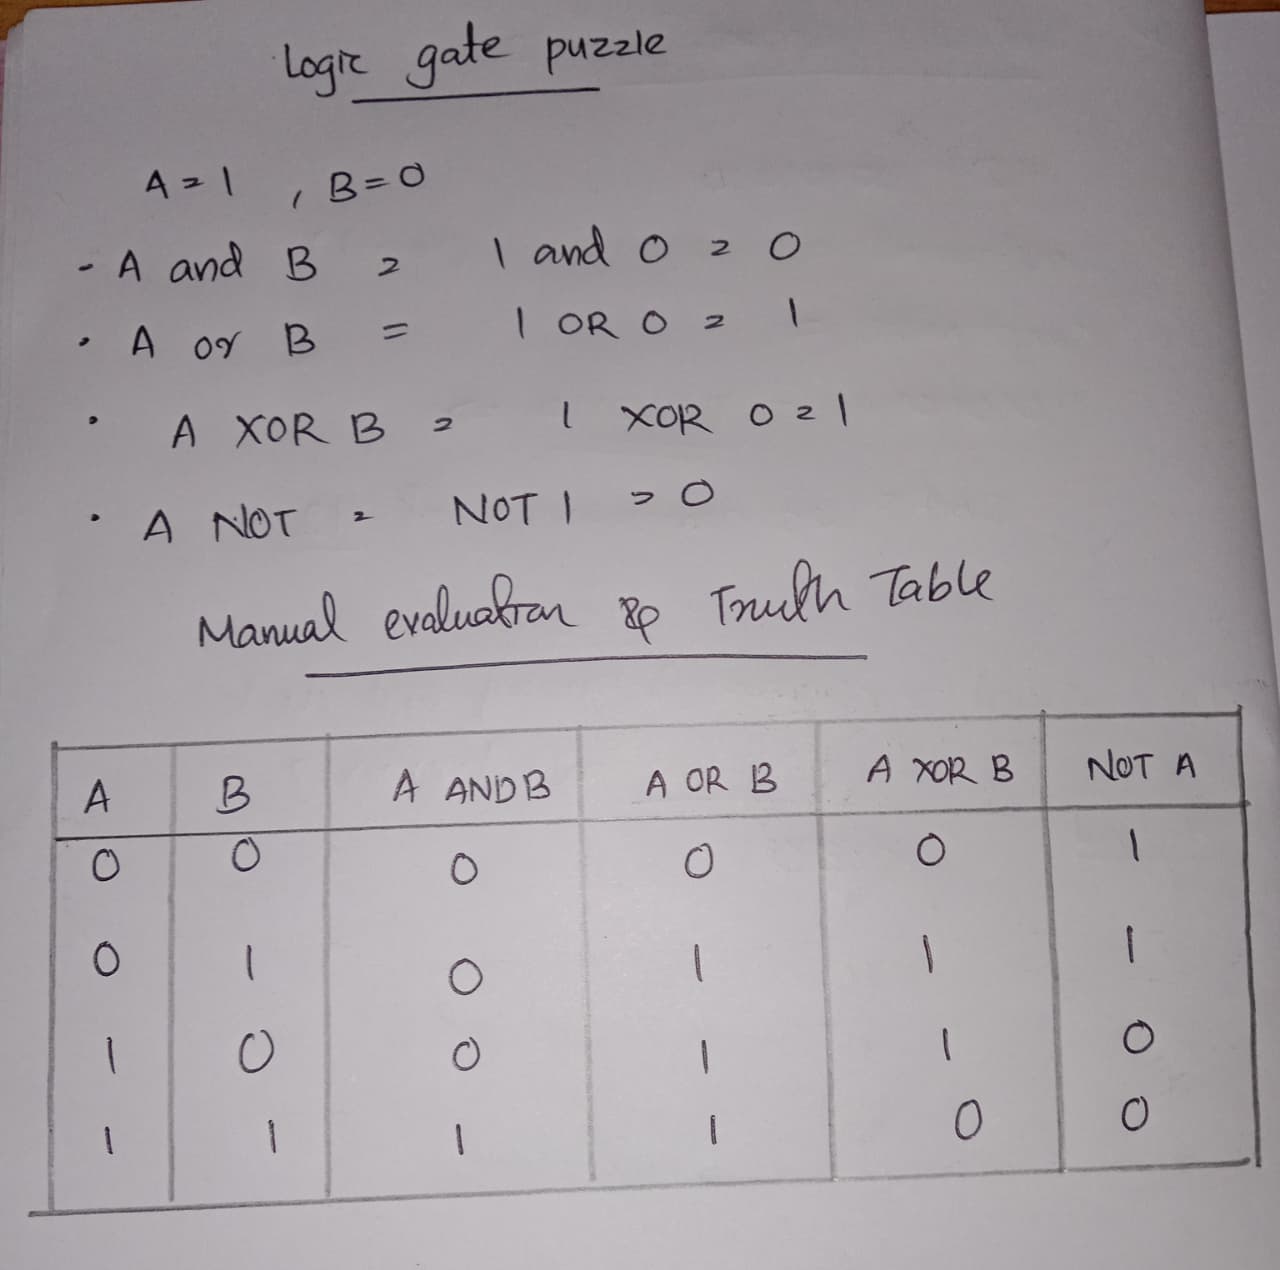 Logic gate puzzle
A = 1 , B = 0
- A and B = 1 and 0 = 0
• A or B = 1 OR 0 = 1
• A XOR B = 1 XOR 0 = 1
• A NOT = NOT 1 = 0
Manual evaluation & Truth Table
A B A AND B A OR B A XOR B NOT A
0 0 0 0 0 1
0 1 0 1 1 1
1 0 0 1 1 0
1 1 1 1 0 0